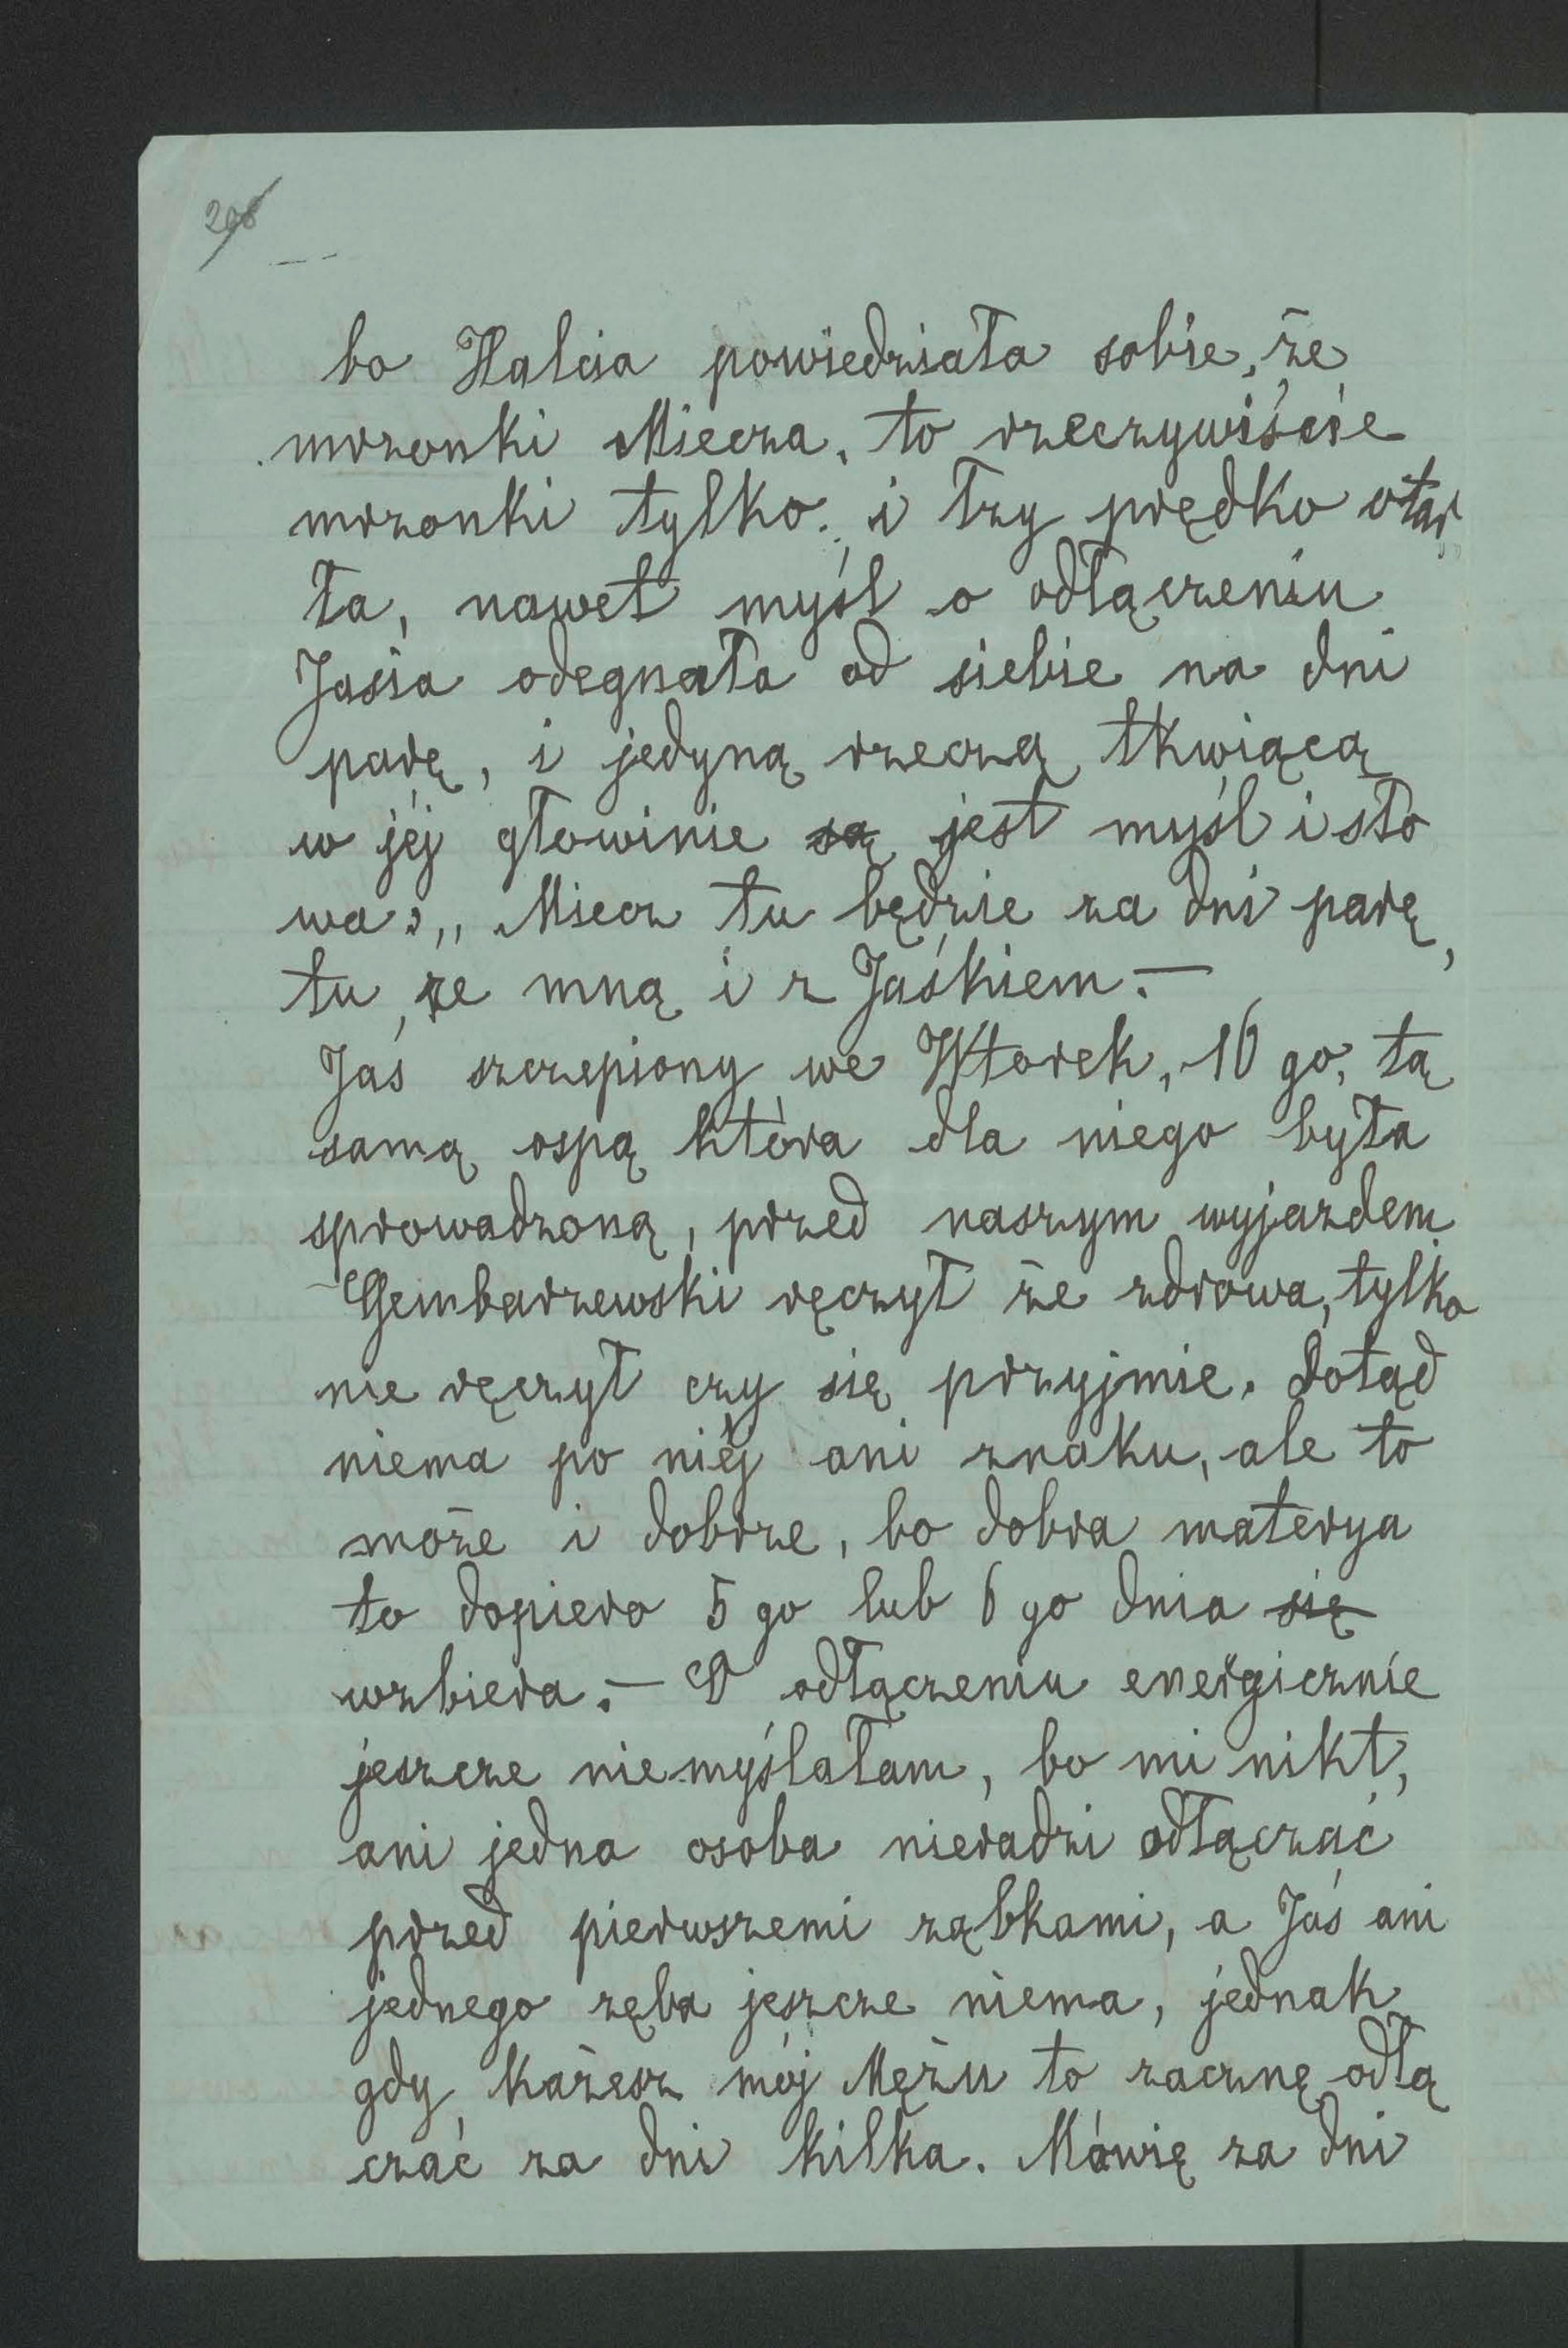 208
bo Halcia powiedziała sobie, że
mrzonki Miecza, to rzeczywiście
mrzonki tylko, i łzy prędko otar
ła, nawet myśl o odłączeniu
Jasia odegnała od siebie na dni
parę, i jedyną rzeczą tkwiącą
w jéj głowinie są jest myśl i sło
wa: „Miecz tu będzie za dni parę,
tu ze mną i z Jaśkiem. —
Jaś szczepiony we Wtorek, 16 go, tą
samą ospą która dla niego była
sprowadzoną, przed naszym wyjazdem
Gembarzewski ręczył że zdrowa, tylko
nie ręczył czy się przyjmie. Dotąd
niema po niéj ani znaku, ale to
może i dobrze, bo dobra materya
to dopiero 5 go lub 6 go dnia się
wzbiera. — O odłączeniu energicznie
jeszcze niemyślałam, bo mi nikt,
ani jedna osoba nieradzi odłączać
przed pierwszemi ząbkami, a Jaś ani
jednego zęba jeszcze niema, jednak
gdy każesz mój Mężu to zacznę odłą
czać za dni kilka. Mówię za dni